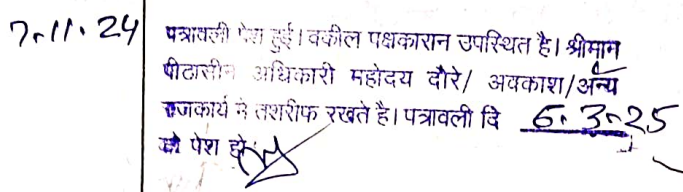 7.11.24
पत्रावली पेश हुई। वकील पक्षकारान उपस्थित है। श्रीमान
पीठासीन अधिकारी महोदय दौरे/ अवकाश/अन्य
राजकार्य में तशरीफ रखते है। पत्रावली दि 6.3.25
को पेश हो